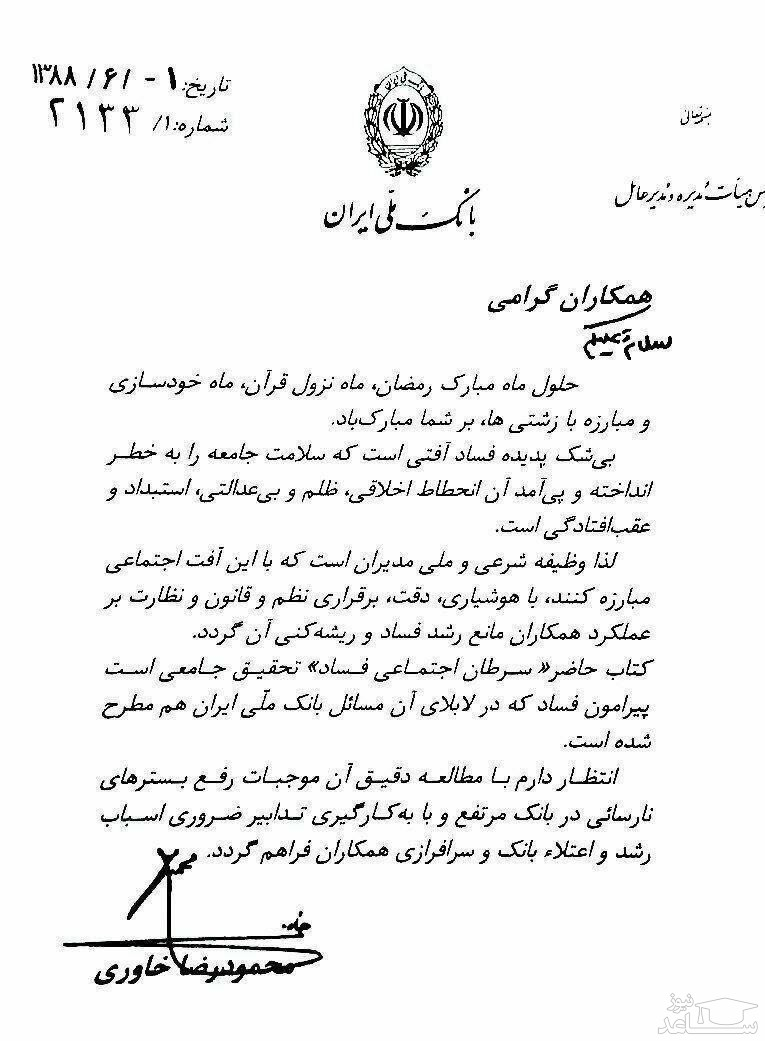 بسمه‌تعالی
تاریخ: ۱ - /۶ /۱۳۸۸
شماره: ۱/ ۲۱۳۳
هیأت مدیره و مدیر عامل
بانک ملّی ایران
همکاران گرامی
سلام علیکم
حلول ماه مبارک رمضان، ماه نزول قرآن، ماه خودسازی
و مبارزه با زشتی ها، بر شما مبارک‌باد.
بی‌شک پدیده فساد آفتی است که سلامت جامعه را به خطر
انداخته و پی‌آمد آن انحطاط اخلاقی، ظلم و بی‌عدالتی، استبداد و
عقب‌افتادگی است.
لذا وظیفه شرعی و ملی مدیران است که با این آفت اجتماعی
مبارزه کنند، با هوشیاری، دقت، برقراری نظم و قانون و نظارت بر
عملکرد همکاران مانع رشد فساد و ریشه‌کنی آن گردد.
کتاب حاضر« سرطان اجتماعی فساد» تحقیق جامعی است
پیرامون فساد که در لابلای آن مسائل بانک ملّی ایران هم مطرح
شده است.
انتظار دارم با مطالعه دقیق آن موجبات رفع بسترهای
نارسائی در بانک مرتفع و با به‌کارگیری تدابیر ضروری اسباب
رشد و اعتلاء بانک و سرافرازی همکاران فراهم گردد.
محمودرضا خاوری
نیوز
ساعد